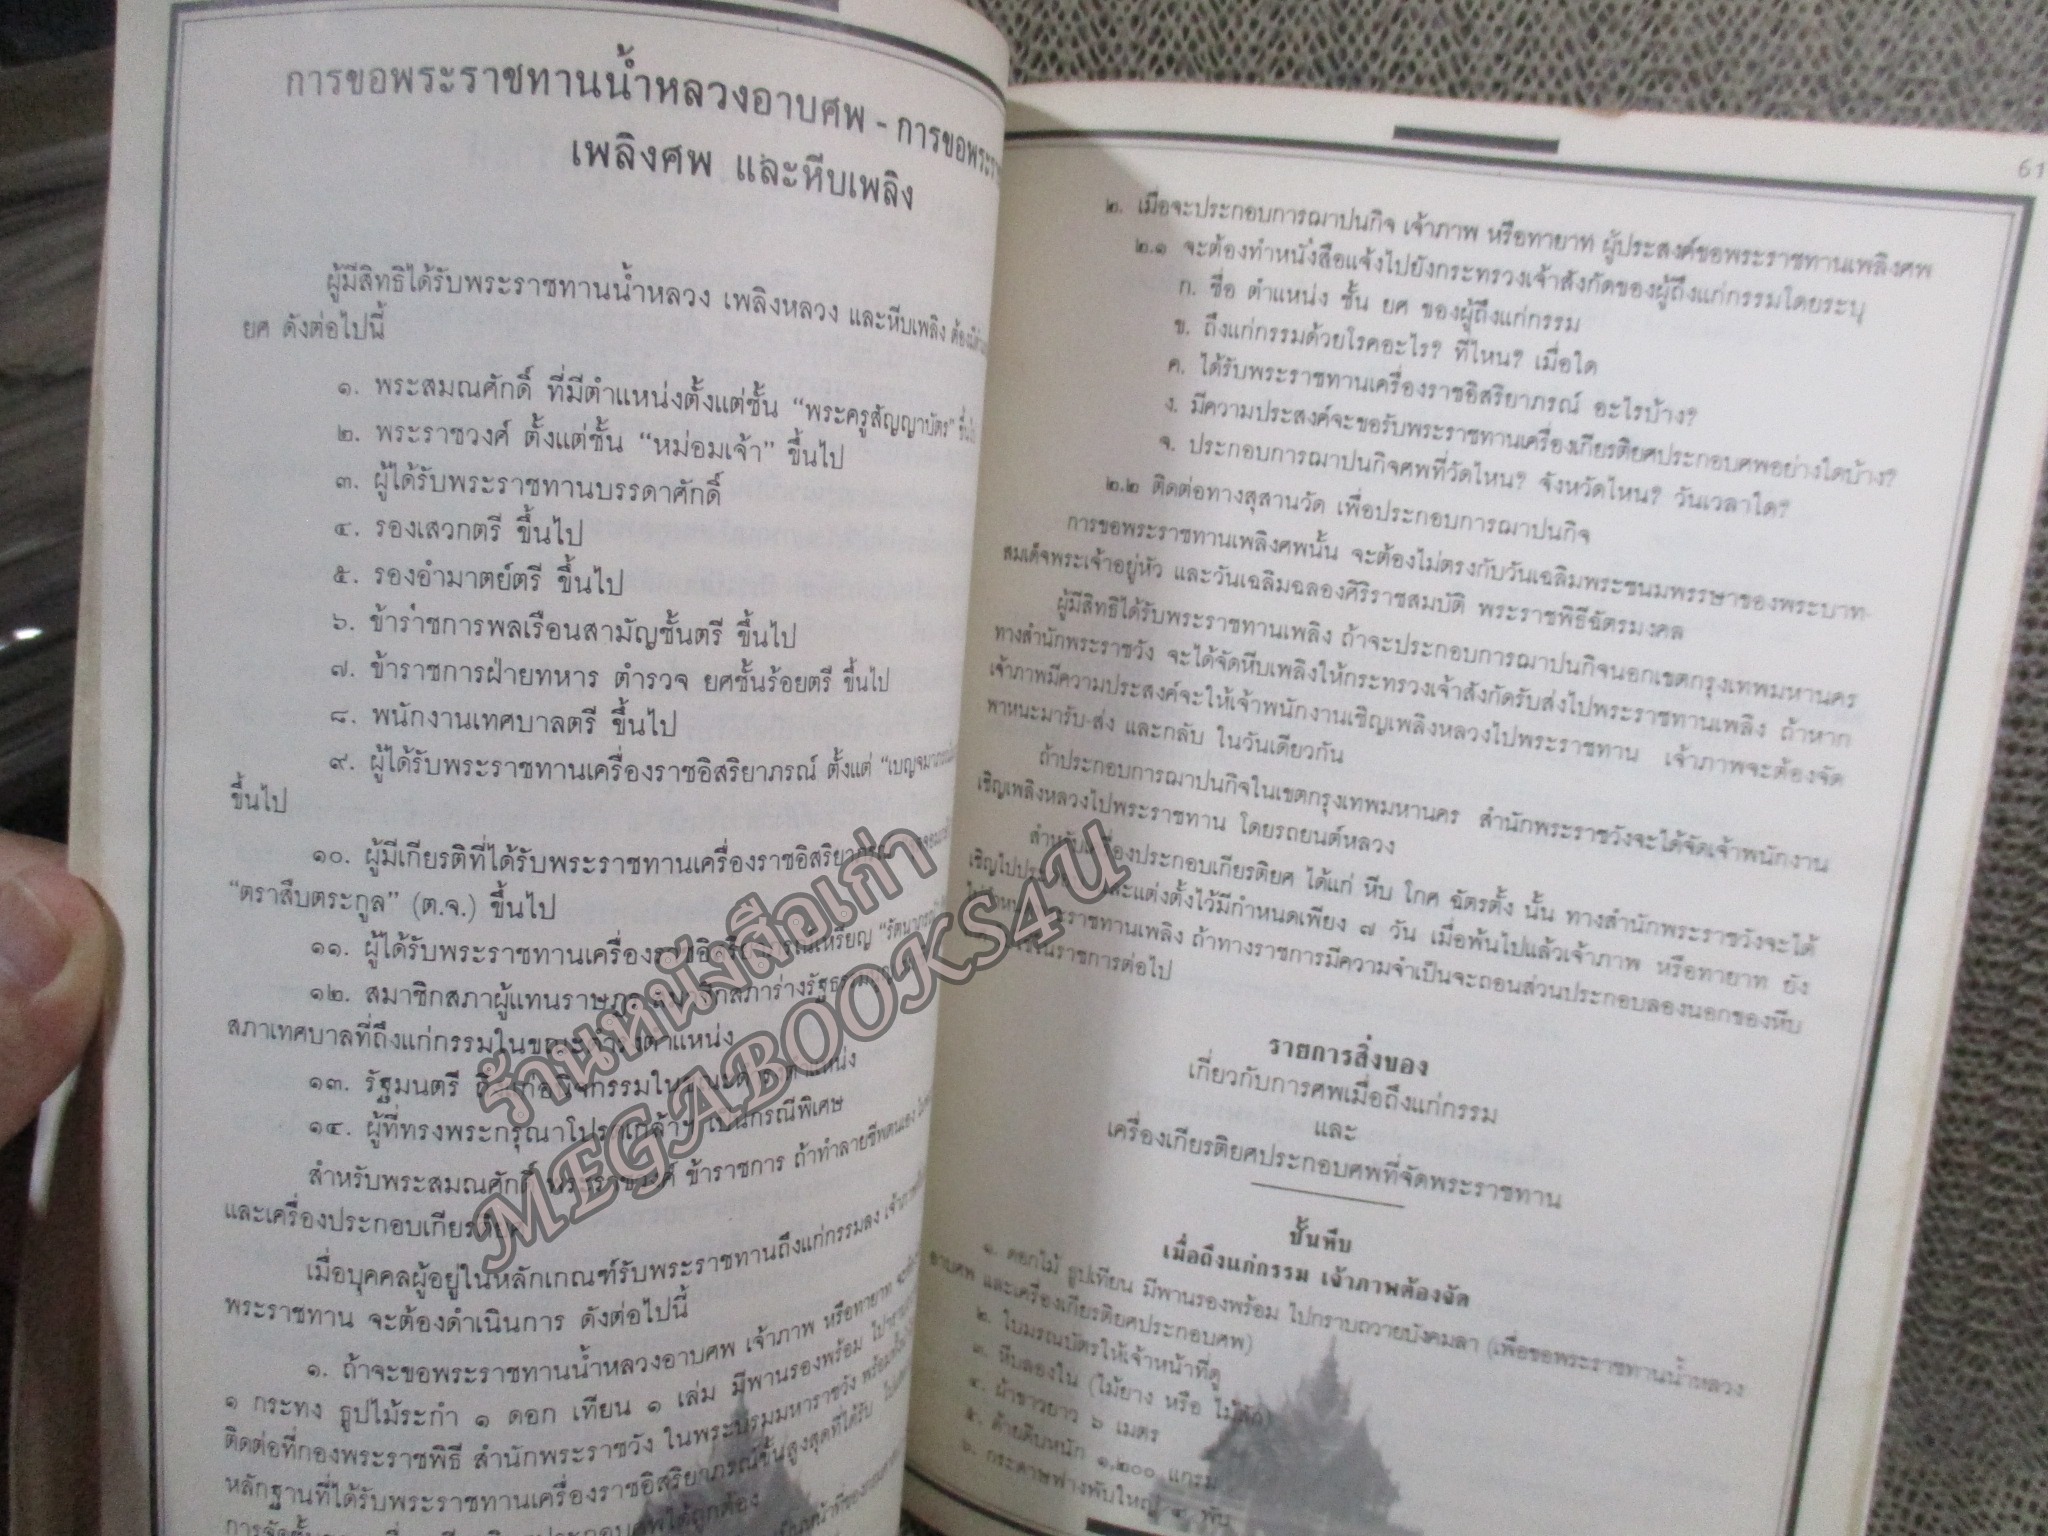 การขอพระราชทานน้ำหลวงอาบศพ - การขอพระรา
เพลิงศพ และหีบเพลิง
ผู้มีสิทธิได้รับพระราชทานน้ำหลวง เพลิงหลวง และหีบเพลิง ต้องมี
ยศ ดังต่อไปนี้
๑. พระสมณศักดิ์ ที่มีตำแหน่งตั้งแต่ชั้น “พระครูสัญญาบัตร” ขึ้นไป
๒. พระราชวงศ์ ตั้งแต่ชั้น “หม่อมเจ้า” ขึ้นไป
๓. ผู้ได้รับพระราชทานบรรดาศักดิ์
๔. รองเสวกตรี ขึ้นไป
๕. รองอำมาตย์ตรี ขึ้นไป
๖. ข้าราชการพลเรือนสามัญชั้นตรี ขึ้นไป
๗. ข้าราชการฝ่ายทหาร ตำรวจ ยศชั้นร้อยตรี ขึ้นไป
๘. พนักงานเทศบาลตรี ขึ้นไป
๙. ผู้ได้รับพระราชทานเครื่องราชอิสริยาภรณ์ ตั้งแต่
ขึ้นไป
๑๐. ผู้มีเกียรติที่ได้รับพระราชทานเครื่องราชอิสริยาภรณ์
“ตราสืบตระกูล” (ต.จ.) ขึ้นไป
๑๑. ผู้ได้รับพระราชทานเครื่องราชอิสริยาภรณ์เหรียญ “รัตนาภรณ์
๑๒. สมาชิกสภาผู้แทนราษฎร สมาชิกสภาร่างรัฐธรรมนูญ
สภาเทศบาลที่ถึงแก่กรรมในขณะดำรงตำแหน่ง
๑๓. รัฐมนตรี ถึงแก่อนิจกรรมในขณะดำรงตำแหน่ง
๑๔. ผู้ที่ทรงพระกรุณาโปรดเกล้าฯ เป็นกรณีพิเศษ
สำหรับพระสมณศักดิ์ พระราชวงศ์ ข้าราชการ ถ้าทำลายชีพตนเอง
และเครื่องประกอบเกียรติยศ
เมื่อบุคคลผู้อยู่ในหลักเกณฑ์รับพระราชทานถึงแก่กรรมลง
พระราชทาน จะต้องดำเนินการ ดังต่อไปนี้
๑. ถ้าจะขอพระราชทานน้ำหลวงอาบศพ เจ้าภาพ หรือทายาท
๑ กระทง ธูปไม้ระกำ ๑ ดอก เทียน ๑ เล่ม มีพานรองพร้อม
ติดต่อที่กองพระราชพิธี สำนักพระราชวัง ในพระบรมมหาราชวัง
หลักฐานที่ได้รับพระราชทานเครื่องราชอิสริยาภรณ์ชั้นสูงสุดที่ได้รับ
61
๒. เมื่อจะประกอบการฌาปนกิจ เจ้าภาพ หรือทายาท ผู้ประสงค์ขอพระราชทานเพลิงศพ
๒.๑ จะต้องทำหนังสือแจ้งไปยังกระทรวงเจ้าสังกัดของผู้ถึงแก่กรรมโดยระบุ
ก. ชื่อ ตำแหน่ง ชั้น ยศ ของผู้ถึงแก่กรรม
ข. ถึงแก่กรรมด้วยโรคอะไร? ที่ไหน? เมื่อใด
ค. ได้รับพระราชทานเครื่องราชอิสริยาภรณ์ อะไรบ้าง?
ง. มีความประสงค์จะขอรับพระราชทานเครื่องเกียรติยศประกอบศพอย่างใดบ้าง?
จ. ประกอบการฌาปนกิจศพที่วัดไหน? จังหวัดไหน? วันเวลาใด?
๒.๒ ติดต่อทางสุสานวัด เพื่อประกอบการฌาปนกิจ
การขอพระราชทานเพลิงศพนั้น จะต้องไม่ตรงกับวันเฉลิมพระชนมพรรษาของพระบาท-
สมเด็จพระเจ้าอยู่หัว และวันเฉลิมฉลองศิริราชสมบัติ พระราชพิธีฉัตรมงคล
ผู้มีสิทธิได้รับพระราชทานเพลิง ถ้าจะประกอบการฌาปนกิจนอกเขตกรุงเทพมหานคร
ทางสำนักพระราชวัง จะได้จัดหีบเพลิงให้กระทรวงเจ้าสังกัดรับส่งไปพระราชทานเพลิง ถ้าหาก
เจ้าภาพมีความประสงค์จะให้เจ้าพนักงานเชิญเพลิงหลวงไปพระราชทาน เจ้าภาพจะต้องจัด
พาหนะมารับ-ส่ง และกลับ ในวันเดียวกัน
ถ้าประกอบการฌาปนกิจในเขตกรุงเทพมหานคร สำนักพระราชวังจะได้จัดเจ้าพนักงาน
เชิญเพลิงหลวงไปพระราชทาน โดยรถยนต์หลวง
สำหรับเครื่องประกอบเกียรติยศ ได้แก่ หีบ โกศ ฉัตรตั้ง นั้น ทางสำนักพระราชวังจะได้
เชิญไปประ และแต่งตั้งไว้มีกำหนดเพียง ๗ วัน เมื่อพ้นไปแล้วเจ้าภาพ หรือทายาท ยัง
พระราชทานเพลิง ถ้าทางราชการมีความจำเป็นจะถอนส่วนประกอบลองนอกของหีบ
ในราชการต่อไป
รายการสิ่งของ
เกี่ยวกับการศพเมื่อถึงแก่กรรม
และ
เครื่องเกียรติยศประกอบศพที่จัดพระราชทาน
ชั้นหีบ
เมื่อถึงแก่กรรม เจ้าภาพต้องจัด
๑. ดอกไม้ ธูปเทียน มีพานรองพร้อม ไปกราบถวายบังคมลา (เพื่อขอพระราชทานน้ำหลวง
อาบศพ และเครื่องเกียรติยศประกอบศพ)
๒. ใบมรณบัตรให้เจ้าหน้าที่ดู
๓. หีบลองใน (ไม้ยาง หรือ ไม้สัก)
๔. ผ้าขาวยาว ๖ เมตร
๕. ด้ายดิบหนัก ๑,๒๐๐ แกรม
๖. กระดาษฟางพับใหญ่ ๔ พับ
ร้านหนังสือเก่า
MEGABOOKS4U